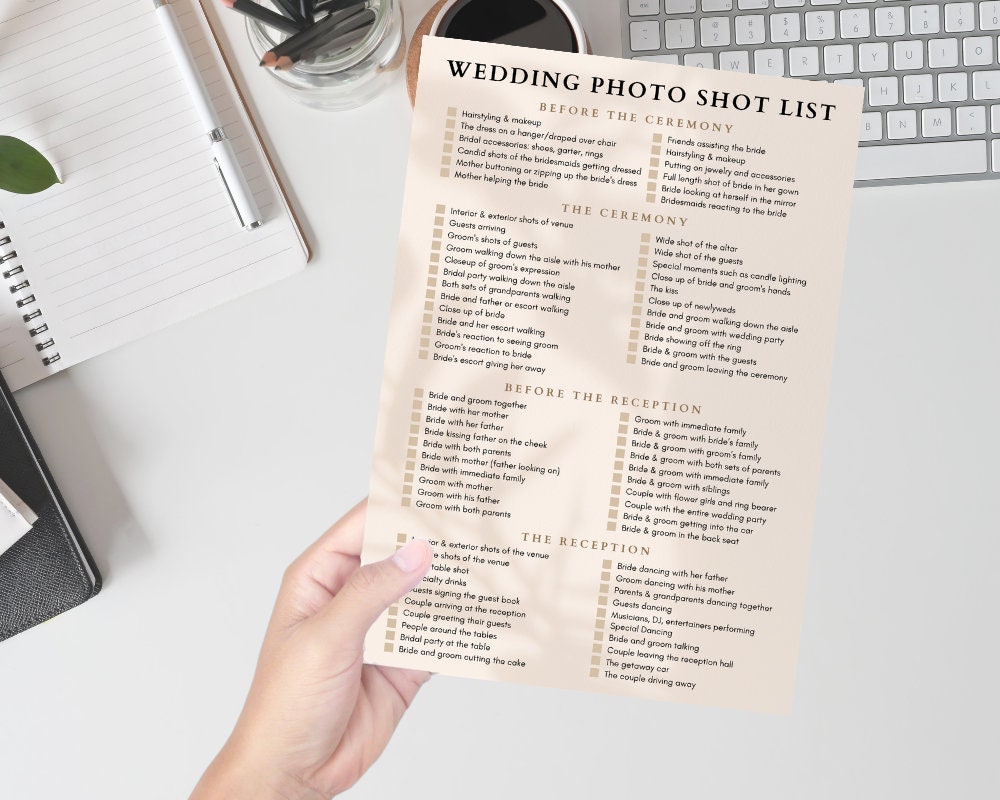 WEDDING PHOTO SHOT LIST
BEFORE THE CEREMONY
Hairstyling & makeup
The dress on a hanger/draped over chair
Bridal accessories: shoes, garter, rings
Candid shots of the bridesmaids getting dressed
Mother buttoning or zipping up the bride's dress
Mother helping the bride
Friends assisting the bride
Hairstyling & makeup
Putting on jewelry and accessories
Full length shot of bride in her gown
Bride looking at herself in the mirror
Bridesmaids reacting to the bride
THE CEREMONY
Interior & exterior shots of venue
Guests arriving
Groom's shots of guests
Groom walking down the aisle with his mother
Closeup of groom's expression
Bridal party walking down the aisle
Both sets of grandparents walking
Bride and father or escort walking
Close up of bride
Bride and her escort walking
Bride's reaction to seeing groom
Groom's reaction to bride
Bride's escort giving her away
Wide shot of the altar
Wide shot of the guests
Special moments such as candle lighting
Close up of bride and groom's hands
The kiss
Close up of newlyweds
Bride and groom walking down the aisle
Bride and groom with wedding party
Bride showing off the ring
Bride & groom with the guests
Bride and groom leaving the ceremony
BEFORE THE RECEPTION
Bride and groom together
Bride with her mother
Bride with her father
Bride kissing father on the cheek
Bride with both parents
Bride with mother (father looking on)
Bride with immediate family
Groom with mother
Groom with his father
Groom with both parents
Groom with immediate family
Bride & groom with bride's family
Bride & groom with groom's family
Bride & groom with both sets of parents
Bride & groom with immediate family
Bride & groom with siblings
Couple with flower girls and ring bearer
Couple with the entire wedding party
Bride & groom getting into the car
Bride & groom in the back seat
THE RECEPTION
& exterior shots of the venue
shots of the venue
table shot
drinks
Guests signing the guest book
Couple arriving at the reception
Couple greeting their guests
People around the tables
Bridal party at the table
Bride and groom cutting the cake
Bride dancing with her father
Groom dancing with his mother
Parents & grandparents dancing together
Guests dancing
Musicians, DJ, entertainers performing
Special Dancing
Bride and groom talking
Couple leaving the reception hall
The getaway car
The couple driving away